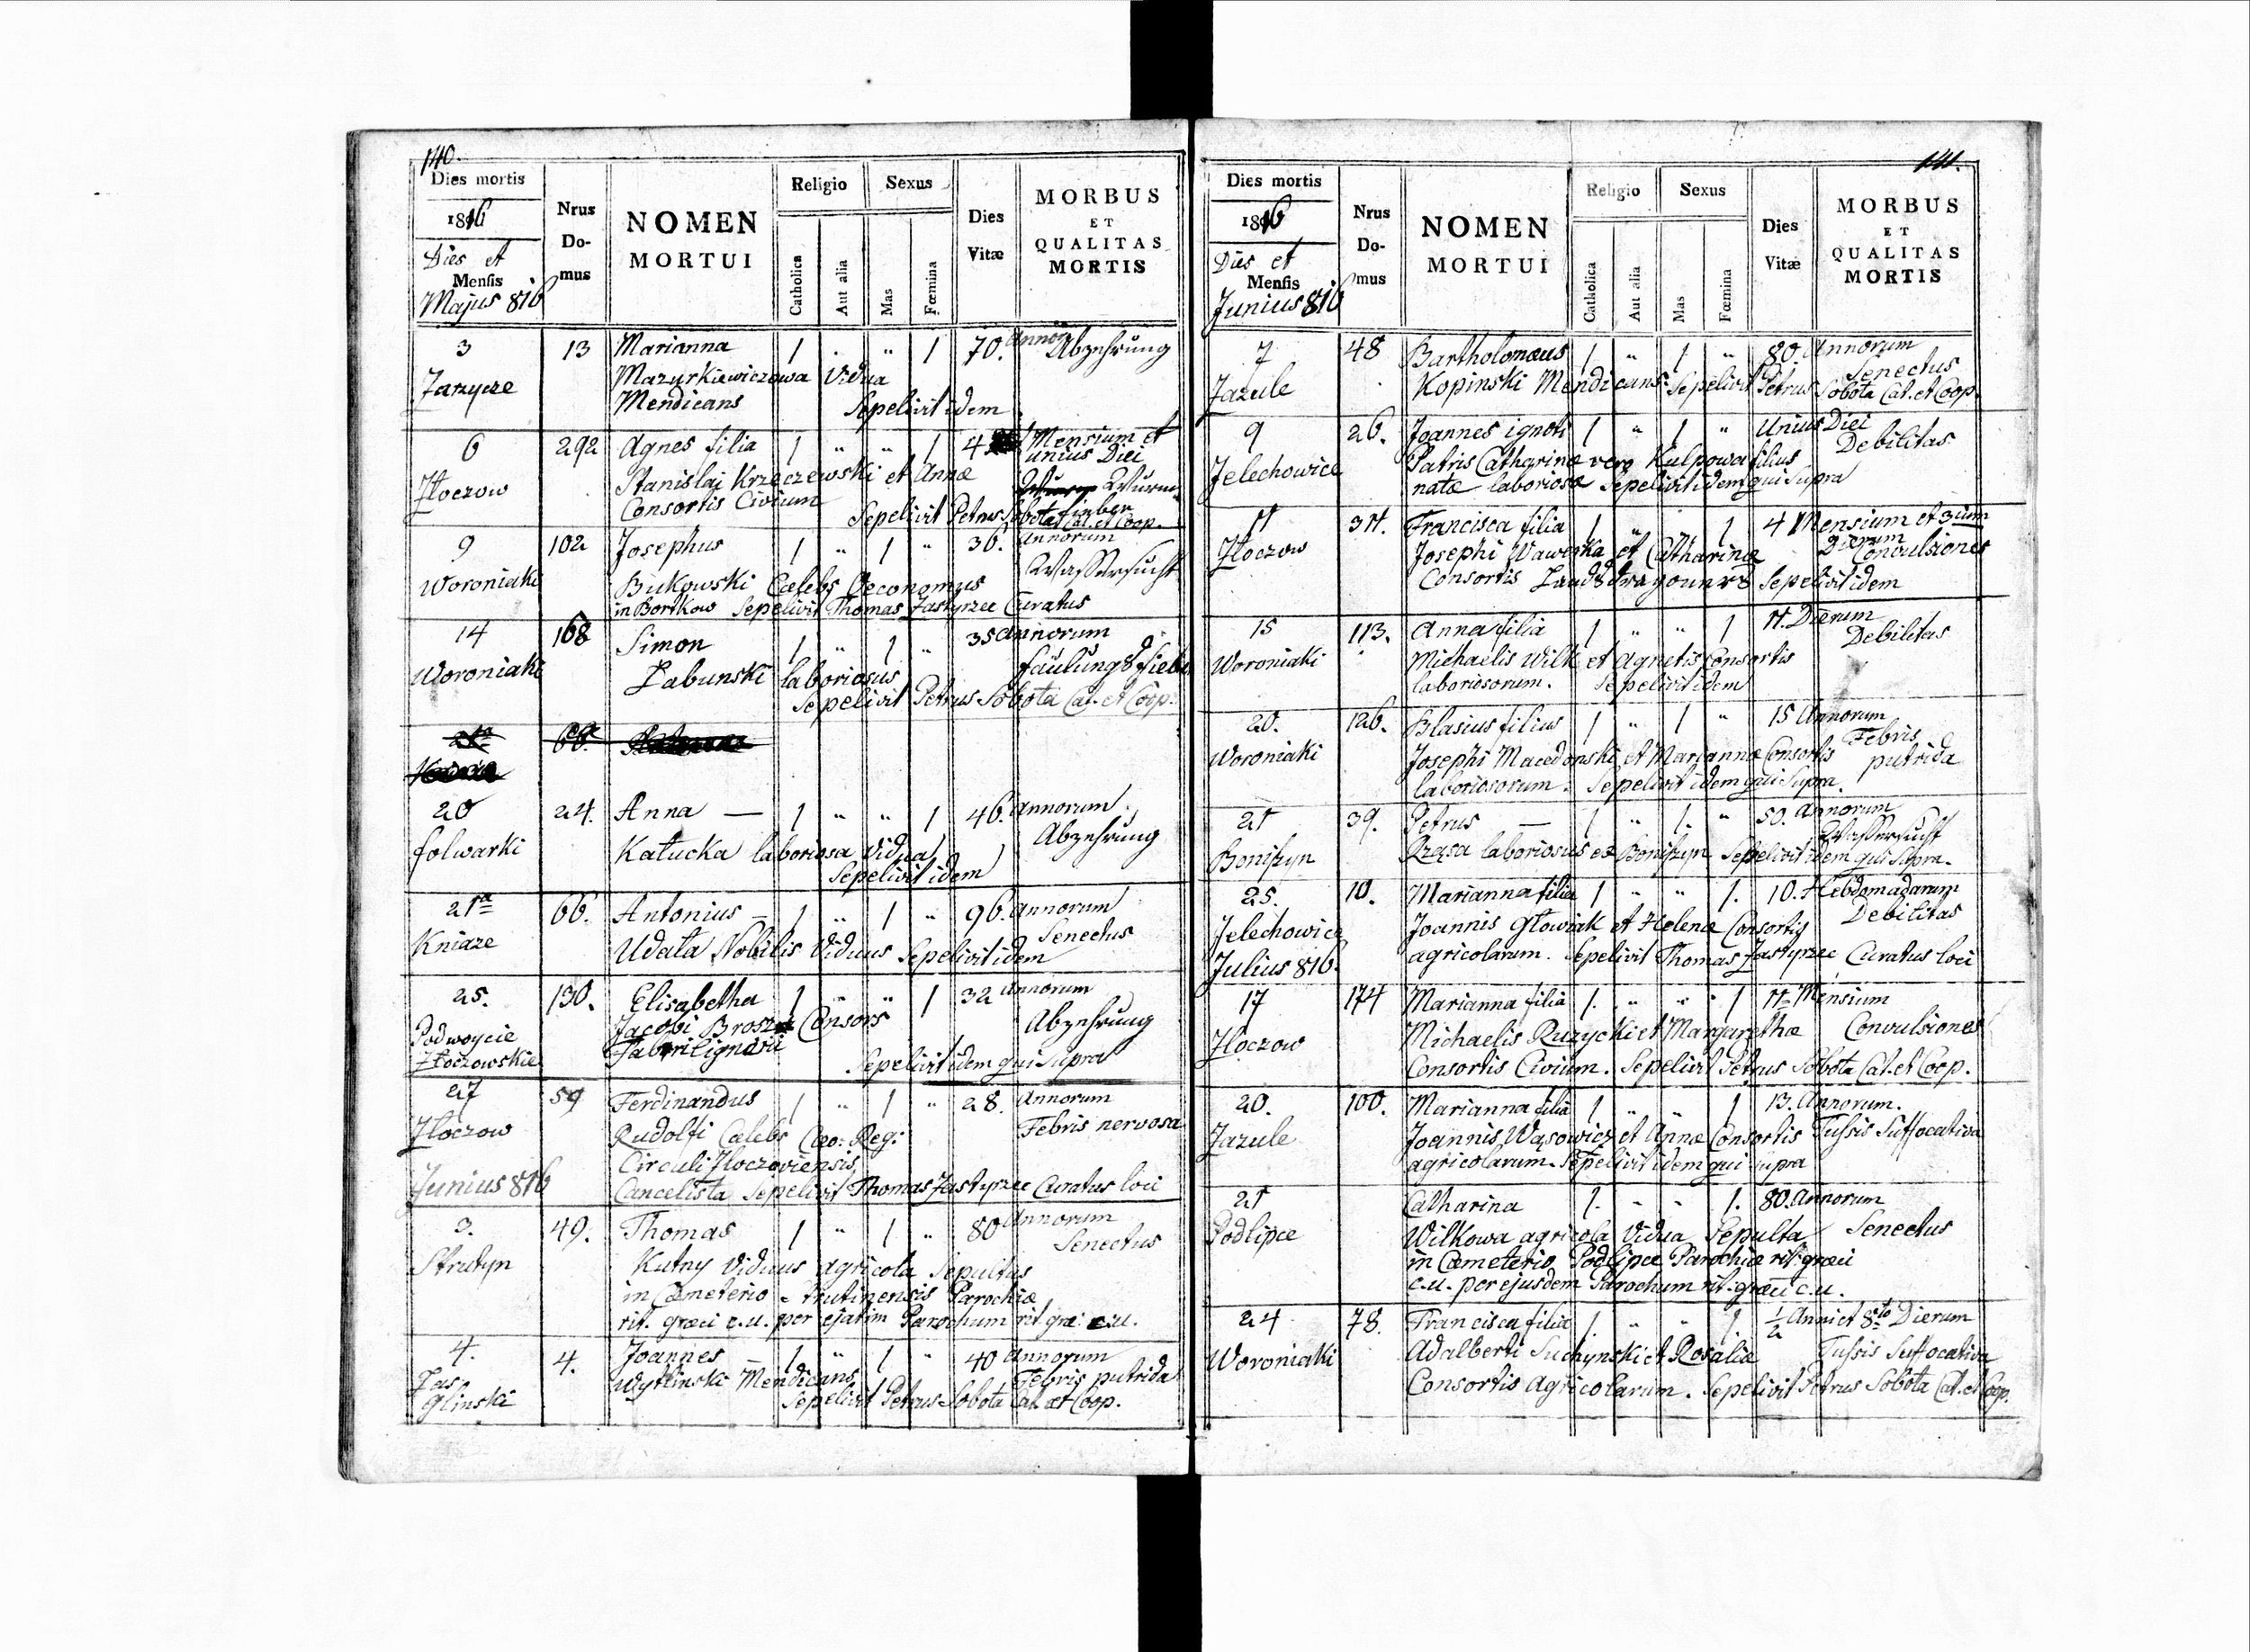 140.
Dies mortis
1816
Dies et
Mensis
Majus 816
Nrus
Do-
mus
NOMEN
MORTUI
Religio
Catholica
Aut alia
Sexus
Mas
Fœmina
Dies
Vitæ
MORBUS
ET
QUALITAS
MORTIS
3 13 Marianna 1 . " 1 70. Annor
Abzehrung
Zarzycze Mazurkiewiczowa Vidua
Mendicans Sepelivit idem
6 292 Agnes filia 1 " " 1 4 Mensium et
unius Diei
Złoczow Stanislai Krzeczewski et Annæ
Wurm
Consortis Civium
fieber
Sepelivit Petrus Sobota Cat. et Coop.
9 102 Josephus 1 " 1 " 36. Annorum
Wassersucht
Woroniaki Bukowski Cælebs Oeconomus
in Bortkow Sepelivit Thomas Zastyrzec Curatus
14 168 Simon 1 " 1 " 35 Annorum
Woroniaki Łabunski laboriosus faulungs fieber
Sepelivit Petrus Sobota Cat. et Coop.
66.
20 24. Anna — 1 " " 1 46. Annorum
Abzehrung
folwarki Katucka laboriosa Vidua
Sepelivit idem
21a 66. Antonius — 1 " 1 " 96. Annorum
Senectus
Kniaze Udata Nobilis Viduus Sepelivit idem
25. 130. Elisabetha 1 " " 1 32 Annorum
Jacobi Consors Abzehrung
Podwoycie
Złoczowskie Fabri lignarii
Sepelivit idem qui Supra
27 59 Ferdinandus 1 " 1 " 28. Annorum
Febris nervosa
Złoczow Rudolfi Cælebs Cæo: Reg:
Circuli Złoczoviensis
Junius 816 Cancelista Sepelivit Thomas Zastyrzec Curatus loci
3. 49. Thomas 1 " 1 " 80 Annorum
Senectus
Strutyn Kutny Viduus agricola Sepultus
in Cœmeterio Strutinensis Parochiæ
rit. græci c.u. per Parochum rit. græ: c.u.
4. 4. Joannes — 1 " 1 " 40 Annorum
Febris putrida
Zas
glinski Mendicans
Sepelivit Petrus Sobota Cat. et Coop.
141.
Dies mortis
1816
Dies et
Mensis
Junius 816
Nrus
Do-
mus
NOMEN
MORTUI
Religio
Catholica
Aut alia
Sexus
Mas
Fœmina
Dies
Vitæ
MORBUS
ET
QUALITAS
MORTIS
7 48 Bartholomæus 1 " 1 " 80. Annorum
Senectus
Zazule Kopinski Mendicans. Sepelivit Petrus Sobota Cat. et Coop.
9 26. Joannes ignoti 1 " 1 " Unius Diei
Debilitas
Jelechowice Patris Catharinæ vero Kulpowa filius
natæ laboriosæ Sepelivit idem qui Supra
11 311. Francisca filia 1 " 1 4 Mensium et 3ium
Dierum
Convulsiones
Złoczow Josephi Waweska et Catharinæ
Consortis Landsdragouners Sepelivit idem
15 113. Anna filia 1 " " 1 11. Dierum
Debilitas
Woroniaki Michaelis Wilk et Agnetis Consortis
laboriosorum. Sepelivit idem
20. 126. Blasius filius 1 " 1 " 15 Annorum
Febris
putrida
Woroniaki Josephi Macedonski et Mariannæ Consortis
laboriosorum. Sepelivit idem qui Supra.
21 39. Petrus — 1 " 1. " 50. Annorum
Wassersucht
Boniszyn Rząsa laboriosus ex Boniszyn Sepelivit idem qui Supra.
25. 10. Marianna filia 1 " " 1. 10. Hebdomadarum
Debilitas
Jelechowice Joannis Głowiak et Helenæ Consortis
Julius 816. agricolarum. Sepelivit Thomas Zastyrzec Curatus loci
17 174 Marianna filia 1. " " 1 11 Mensium
Convulsiones
Złoczow Michaelis Ruzycki et Margarethæ
Consortis Civium. Sepelivit Petrus Sobota Cat. et Coop.
20. 100. Marianna filia 1 " " 1 13. Annorum.
Zazule Joannis Wąsowicz et Annæ Consortis Tussis Suffocativa
agricolarum. Sepelivit idem qui Supra
21 Catharina 1. - - 1. 80. Annorum
Podlipce Wilkowa agricola Vidua Sepulta Senectus
in Cœmeterio Podlipce Parochiæ rit: græci
c.u. per ejusdem Parochum rit. græci c.u.
24 78. Francisca filia 1. " " 1 1/2 Anni et 8to Dierum
Tussis Suffocativa
Woroniaki Adalberti Suchynski et Rosaliæ
Consortis Agricolarum. Sepelivit Petrus Sobota Cat. et Coop.